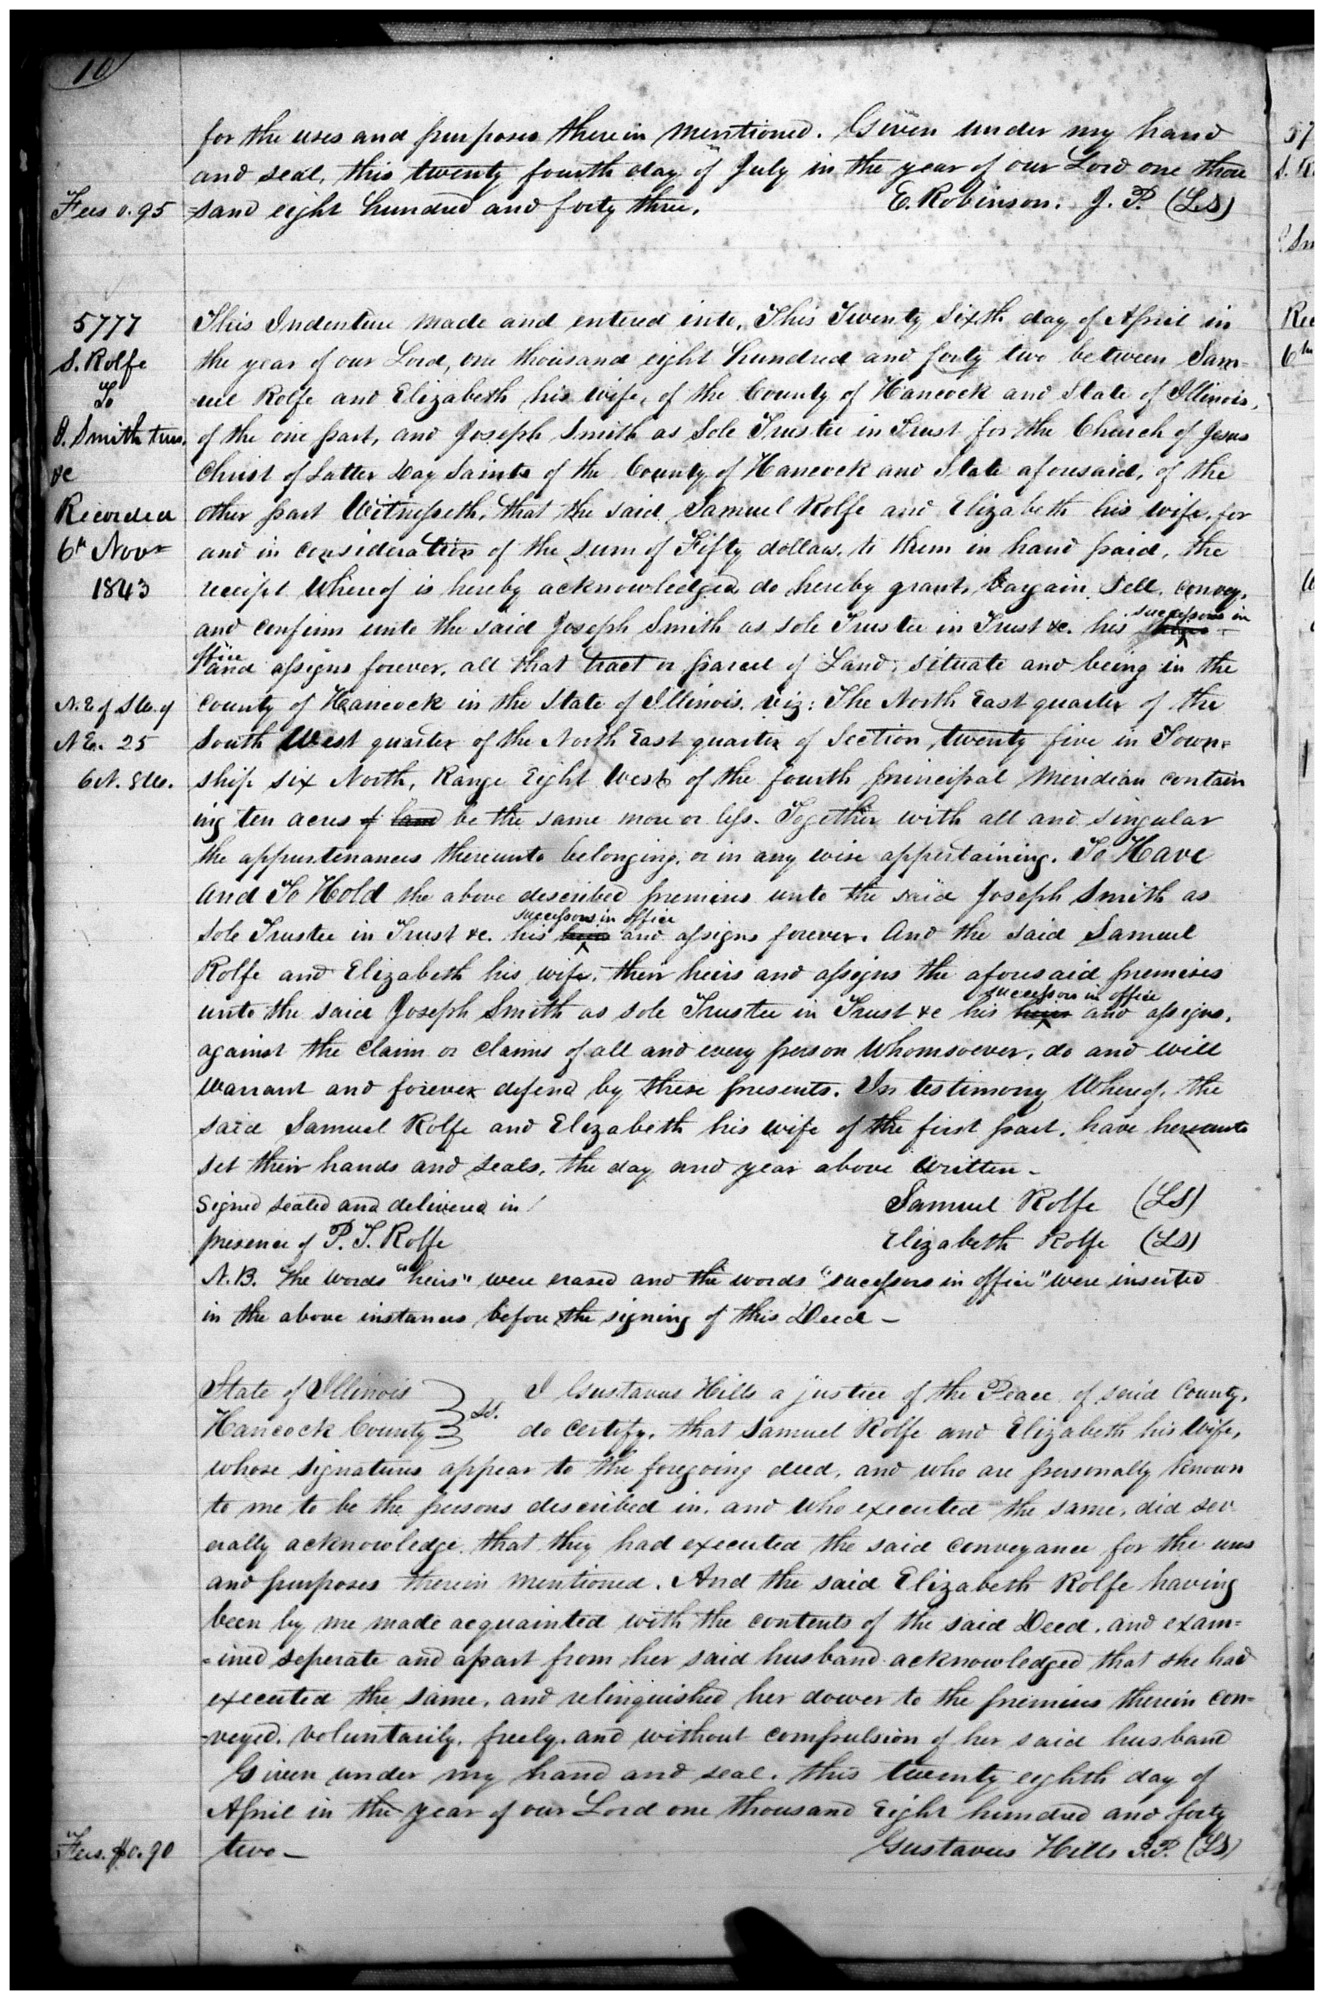 10
for the uses and purposes therein mentioned. Given under my hand
and seal, this twenty fourth day of July in the year of our Lord one thou
Fees 0.95 =sand eight hundred and forty three. E. Robinson. J. P. (LS)
5777 This Indenture made and entered into, This Twenty Sixth day of April in
S. Rolfe the year of our Lord, one thousand eight hundred and forty two between Sam-
To =uel Rolfe and Elizabeth his wife, of the County of Hancock and State of Illinois,
J. Smith trus. of the one part, and Joseph Smith as Sole Trustee in Trust for the Church of Jesus
&c Christ of Latter Day Saints of the County of Hancock and State aforesaid, of the
Recorded other part Witnesseth, that the said Samuel Rolfe and Elizabeth his wife, for
6th Novr and in consideration of the sum of Fifty dollars, to them in hand paid, the
1843 receipt whereof is hereby acknowledged do hereby grant, bargain, sell, convey,
and confirm unto the said Joseph Smith as sole Trustee in Trust &c. his successors in
office and assigns forever, all that tract or parcel of Land, situate and being in the
N.E of S.W. of county of Hancock in the State of Illinois, viz: The North East quarter of the
N.E. 25 South West quarter of the North East quarter of Section twenty five in Town=
6 N. 8 W. ship six North, Range Eight West of the fourth principal Meridian contain
ing ten acres of land be the same more or less. Together with all and singular
the appurtenances thereunto belonging, or in any wise appertaining. To Have
And To Hold the above described premises unto the said Joseph Smith as
successors in office
Sole Trustee in Trust &c. his heirs and assigns forever. And the said Samuel
Rolfe and Elizabeth his wife, their heirs and assigns the aforesaid premises
successors in office
unto the said Joseph Smith as sole Trustee in Trust &c his heirs and assigns,
against the claim or claims of all and every person Whomsoever, do and will
warrant and forever defend by these presents. In testimony Whereof, the
said Samuel Rolfe and Elizabeth his wife of the first part, have hereunto
set their hands and seals, the day and year above written-
Signed sealed and delivered in Samuel Rolfe (LS)
presence of P. T. Rolfe Elizabeth Rolfe (LS)
N.B. The words "heirs" were erased and the words "successors in office" were inserted
in the above instances before the signing of this Deed-
State of Illinois I Gustavus Hills a justice of the Peace of said County,
Hancock County ss. do certify, that Samuel Rolfe and Elizabeth his wife,
whose signatures appear to the foregoing deed, and who are personally known
to me to be the persons described in, and who executed the same, did sev
erally acknowledge that they had executed the said conveyance for the uses
and purposes therein mentioned. And the said Elizabeth Rolfe having
been by me made acquainted with the contents of the said Deed, and exam=
=ined seperate and apart from her said husband acknowledged that she had
executed the same, and relinquished her dower to the premises therein con=
=veyed, voluntarily, freely, and without compulsion of her said husband
Given under my hand and seal, this twenty eighth day of
April in the year of our Lord one thousand Eight hundred and forty
Fees. $0.90 two- Gustavus Hills J.P. (LS)